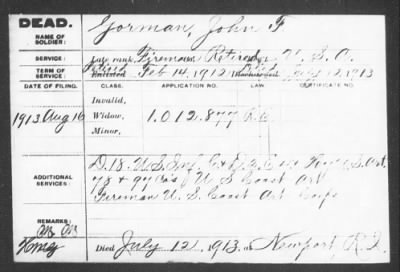 DEAD.
Gorman, John F
NAME OF
SOLDIER:
SERVICE:
Late rank, Fireman Retired, U. S. A.
TERM OF
SERVICE:
Enlisted Feb 14, 1912 Discharged July 12, 1913
DATE OF FILING. CLASS. APPLICATION NO. LAW. CERTIFICATE NO.
Invalid,
1913 Aug 16 Widow, 1.012.877 R.I.
Minor,
D.18. U.S. Inf.
ADDITIONAL
SERVICES:
78 & 97 U S Coast Art
Fireman U. S. Coast Art Corps
REMARKS:
Died July 12, 1913, at Newport, R.I.